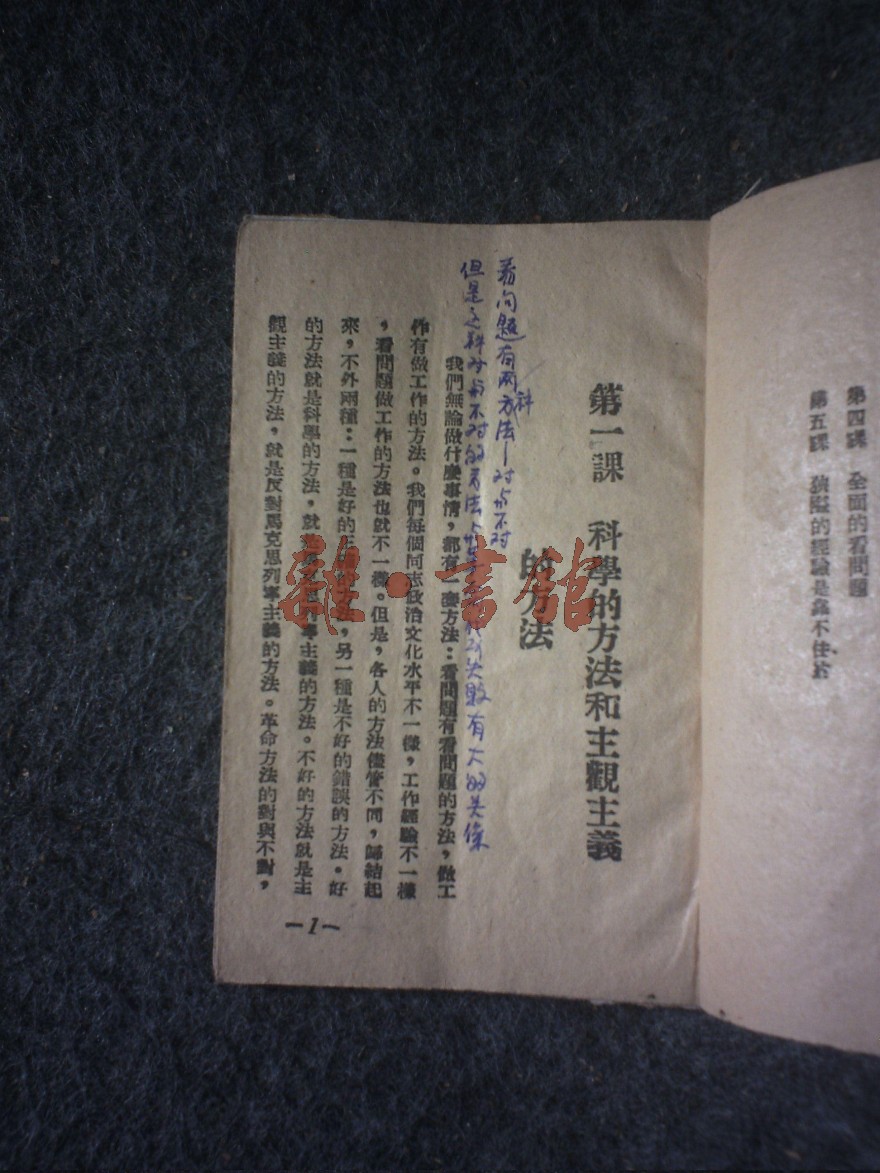 第四課 全面的看問題
第五課 狹隘的經驗是靠不住的
第一課 科學的方法和主觀主義
的方法
看问題有两方法—对与不对
科
但是这种对与不对的看法
失败有大的关係
我們無論做什麼事情，都有一套方法：看問題有看問題的方法，做工
作有做工作的方法。我們每個同志政治文化水平不一樣，工作經驗不一樣
，看問題做工作的方法也就不一樣。但是，各人的方法儘管不同，歸結起
來，不外兩種：一種是好的正確的方法，另一種是不好的錯誤的方法。好
的方法就是科學的方法，就是馬克思列寧主義的方法。不好的方法就是主
觀主義的方法，就是反對馬克思列寧主義的方法。革命方法的對與不對，
—1—
雜·書館